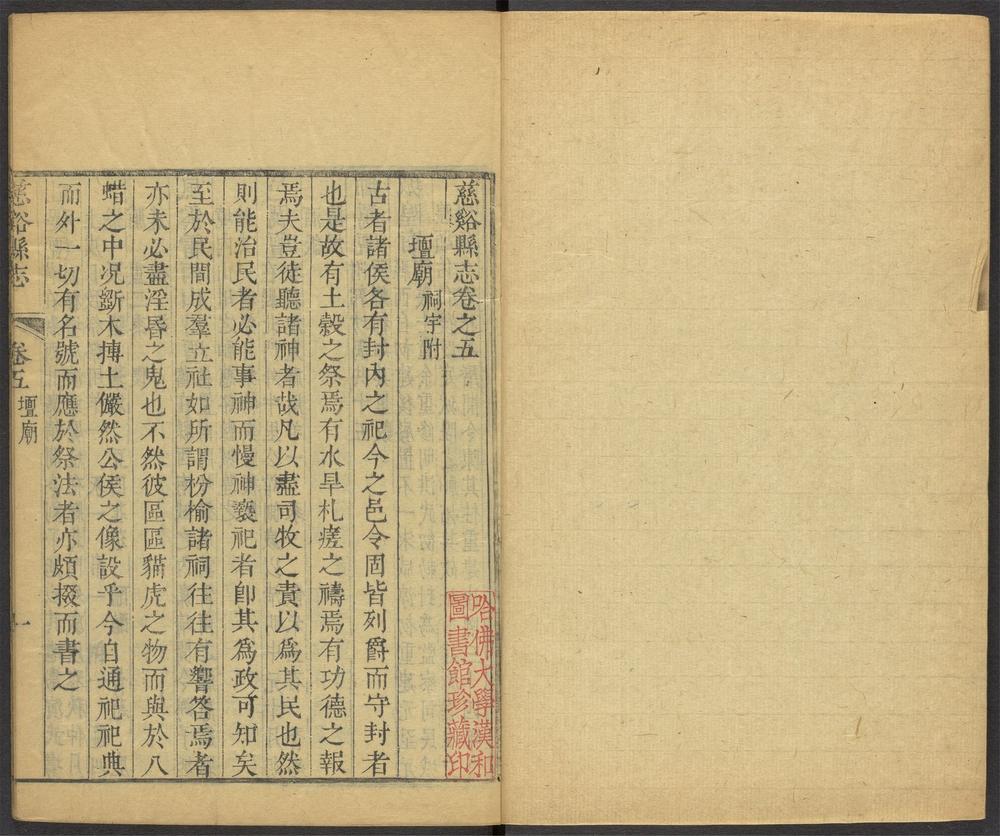 慈谿縣志卷之五
壇廟祠宇附
古者諸侯各有封內之祀今之邑令固皆列爵而守封者
也是故有土穀之祭焉有水旱札瘥之禱焉有功德之報
焉夫豈徒聽諸神者哉凡以盡司牧之責以爲其民也然
則能治民者必能事神而慢神褻祀者卽其爲政可知矣
至於民間成羣立社如所謂枌榆諸祠往往有響答焉者
亦未必盡淫昬之鬼也不然彼區區貓虎之物而與於八
蜡之中况斵木摶土儼然公侯之像設乎今自通祀祀典
而外一切有名號而應於祭法者亦頗掇而書之
慈谿縣志
卷五壇廟
一
哈佛大學漢和
圖書館珍藏印